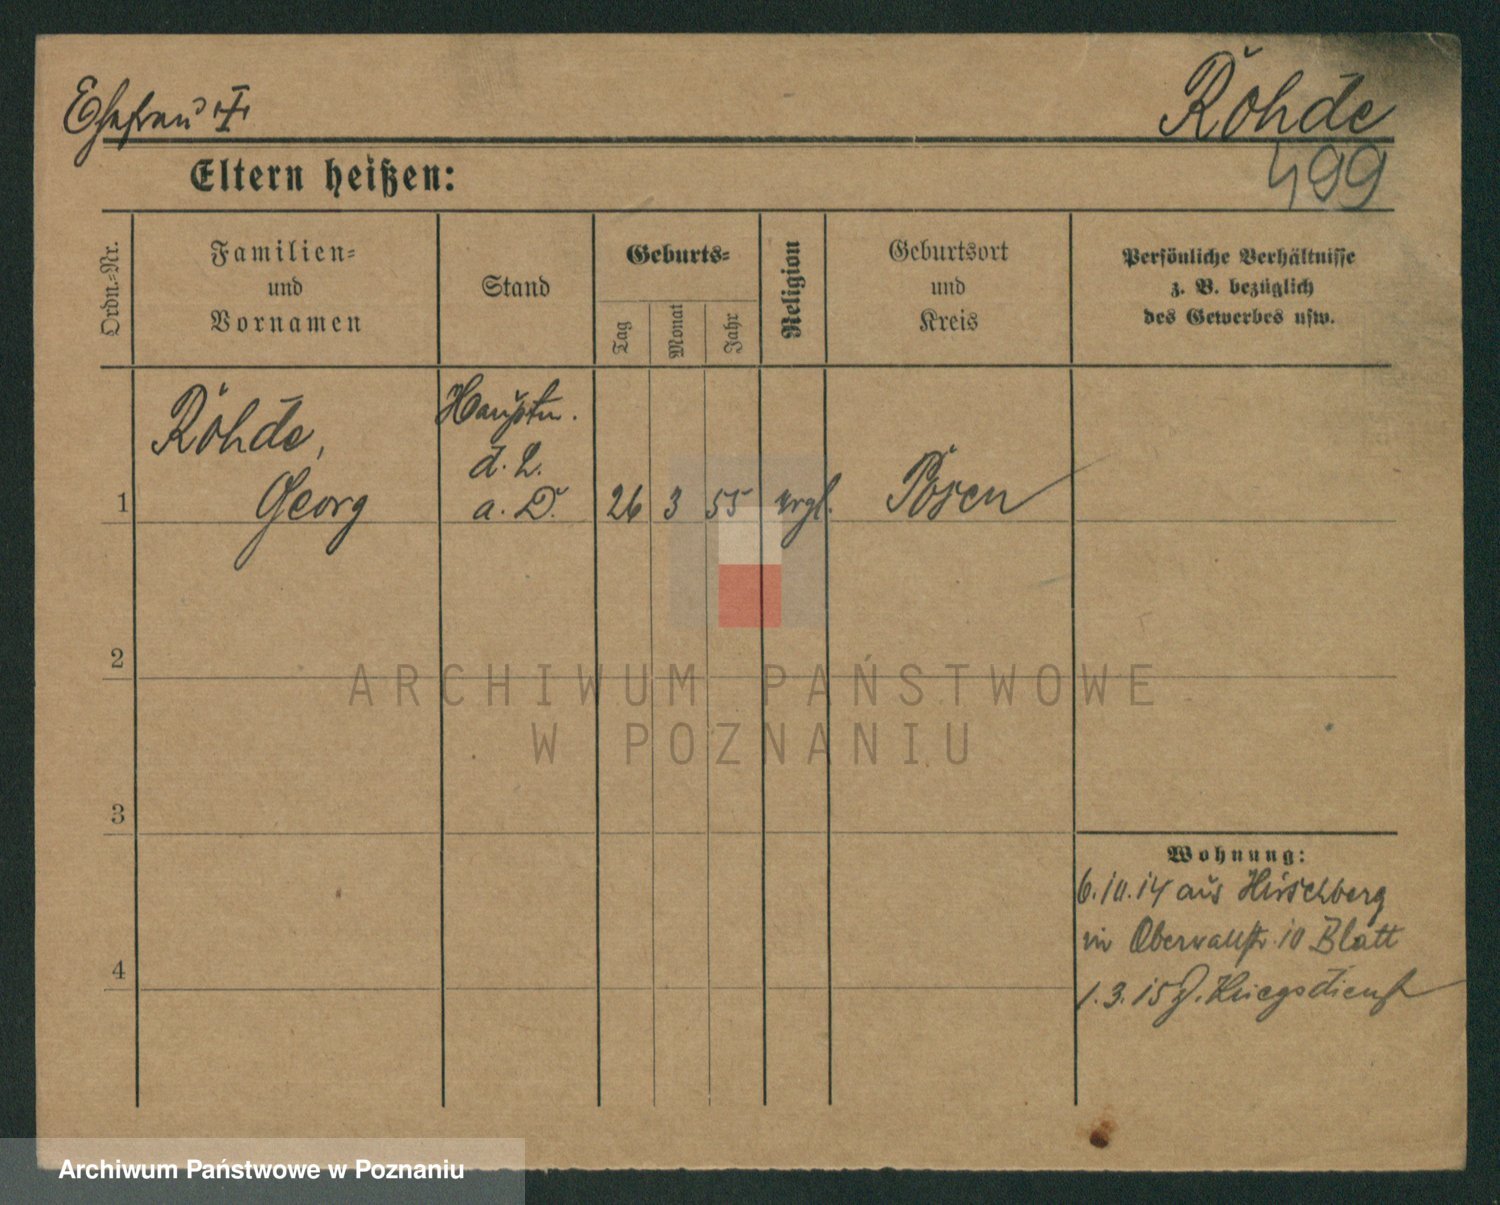 Ehefrau †
Rohde
499
Eltern heißen:
Ordn.-Nr.
Familien-
und
Vornamen
Stand
Geburts-
Tag
Monat
Jahr
Religion
Geburtsort
und
Kreis
Persönliche Verhältnisse
z. B. bezüglich
des Gewerbes usw.
Rohde,
Georg
Hauptm.
d. L.
a. D.
1
26 3 55
Posen
2
ARCHIWUM PAŃSTWOWE
W POZNANIU
3
Wohnung:
6.10.14 aus Hirschberg
in Oberwallstr. 10 Blatt
4
1.3.15 z. Kriegsdienst
Archiwum Państwowe w Poznaniu